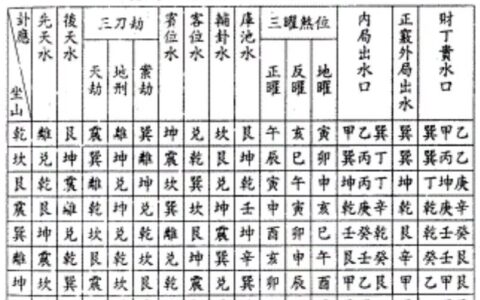 計應 先天水 後天水 三刀劫 賓位水 客位水 輔卦水 庫池水 三曜煞位 內局出水口 正竅外局出水 財丁貴水口
坐山 天劫 地刑 案劫 正曜 反曜 地曜
乾 離 艮 震 離 巽 坤 兌 坎 艮 午 亥 寅 甲乙巽 巽 巽甲乙
坎 兌 坤 巽 坤 離 震 乾 艮 坤 辰 巳 卯 巽丙丁 巽 巽丙乙
艮 乾 震 離 兌 坤 坎 巽 兌 乾 寅 午 申 坤丙丁 坤 丁坤庚
震 艮 離 乾 坎 兌 巽 坎 坤 壬 申 寅 亥 乾庚辛 乾 乾庚辛
巽 坤 兌 坎 兌 乾 離 艮 震 坤 酉 卯 巳 壬癸乾 艮 乾壬癸
離 震 乾 艮 兌 坤 巽 辛 亥 艮壬癸 辛 癸艮壬
坤 坎 巽 震 坎 艮 乾 離 巽 卯 辰 酉 甲乙艮 甲 甲乙艮